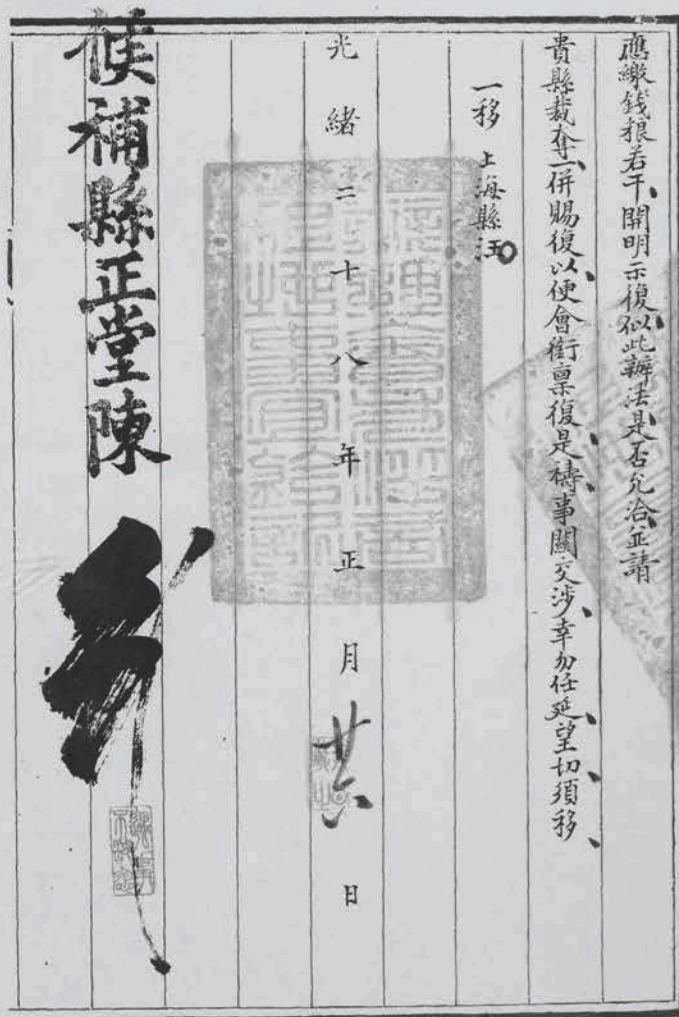 應繳錢粮若干開明示復似此辦法是否允洽並請
貴縣裁奪一併賜復以便會銜稟復是禱事關交涉幸勿任延望切須移
一移上海縣汪
光緒二十八年正月廿六日
候補縣正堂陳